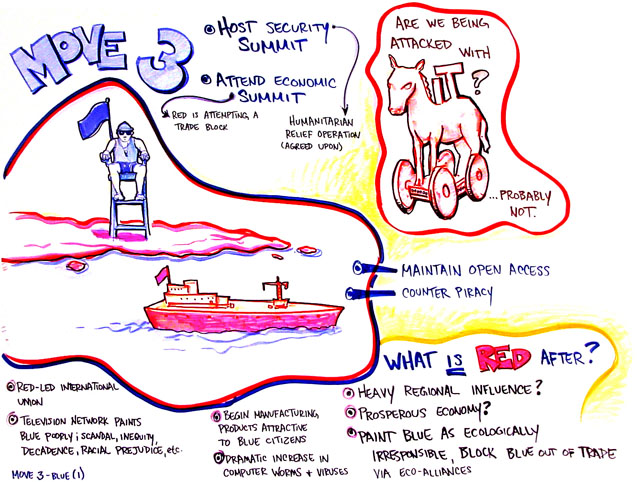 MOVE 3
HOST SECURITY
SUMMIT
ATTEND ECONOMIC
SUMMIT
RED IS ATTEMPTING A
TRADE BLOCK
HUMANITARIAN
RELIEF OPERATION
(AGREED UPON)
ARE WE BEING
ATTACKED WITH
IT ?
...PROBABLY
NOT.
MAINTAIN OPEN ACCESS
COUNTER PIRACY
RED-LED INTERNATIONAL
UNION
TELEVISION NETWORK PAINTS
BLUE POORLY; SCANDAL, INEQUITY,
DECADENCE, RACIAL PREJUDICE, etc.
BEGIN MANFACTURING
PRODUCTS ATTRACTIVE
TO BLUE CITIZENS
DRAMATIC INCREASE IN
COMPUTER WORMS + VIRUSES
WHAT IS RED AFTER?
HEAVY REGIONAL INFLUENCE?
PROSPEROUS ECONOMY?
PAINT BLUE AS ECOLOGICALLY
IRRESPONSIBLE, BLOCK BLUE OUT OF TRADE
VIA ECO-ALLIANCES
MOVE 3-BLUE (1)